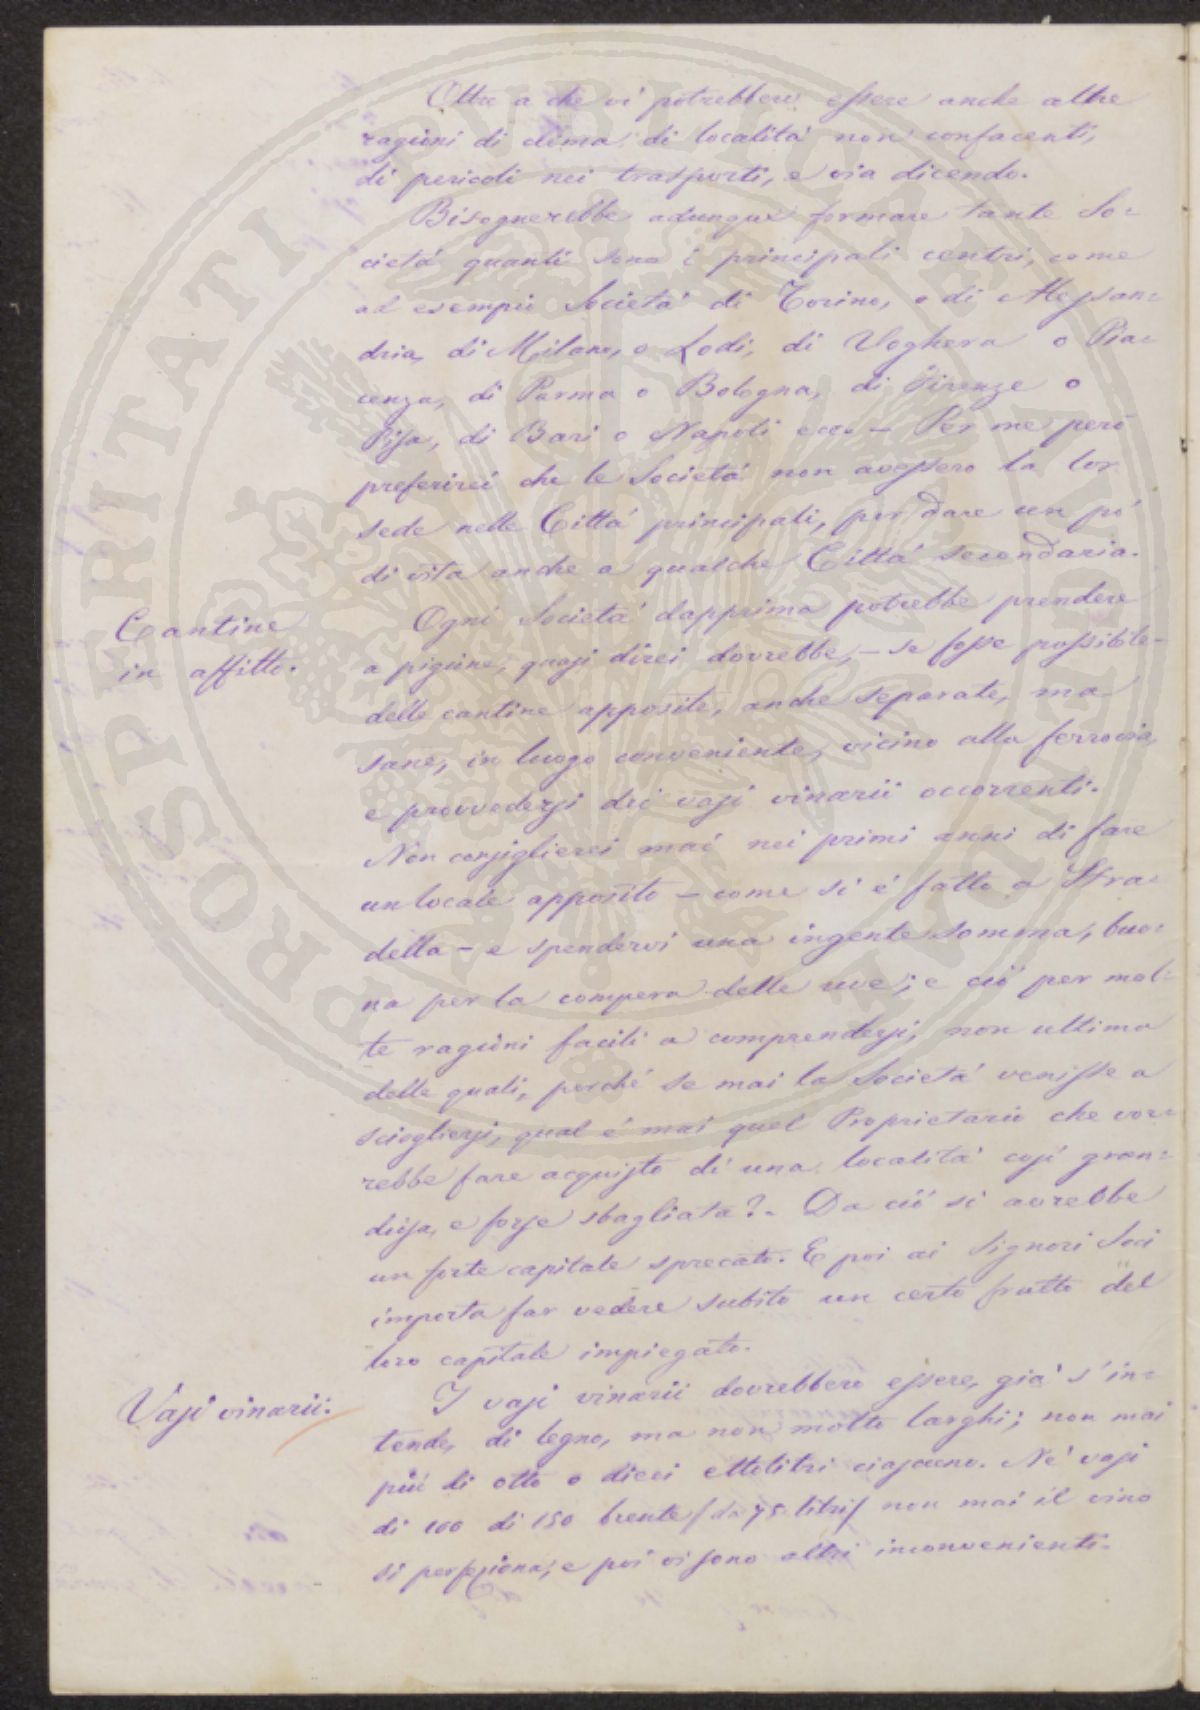 Oltre a che vi potrebbero essere anche altre
ragioni di clima, di località non confacenti,
di pericoli nei trasporti, e via dicendo.
Bisognerebbe adunque formare tante So-
cietà quanti sono i principali centri, come
ad esempio Società di Torino, o di Alessan-
dria, di Milano, o Lodi, di Voghera o Pia-
cenza, di Parma o Bologna, di Firenze o
Pisa, di Bari o Napoli ecc. — Per me però
preferirei che le Società non avessero la lor
sede nelle Città principali, per dare un pò
di vita anche a qualche Città secondaria.
Cantine
in affitto.
Ogni Società dapprima potrebbe prendere
a pigione, quasi direi dovrebbe, — se fosse possibile —
delle cantine apposite, anche separate, ma
sane, in luogo conveniente, vicino alla ferrovia,
e provvedersi dei vasi vinarii occorrenti.
Non consiglierei mai nei primi anni di fare
un locale apposito — come si è fatto a Stra-
della — e spendervi una ingente somma, buo-
na per la compera delle uve; e ciò per mol-
te ragioni facili a comprendersi, non ultima
delle quali, perché se mai la Società venisse a
sciogliersi, qual è mai quel Proprietario che vor-
rebbe fare acquisto di una località così gran-
diosa, e forse sbagliata? Da ciò si avrebbe
un forte capitale sprecato. E poi ai Signori Soci
importa far vedere subito un certo frutto del
loro capitale impiegato.
Vasi vinarii.
I vasi vinarii dovrebbero essere, già s'in-
tende, di legno, ma non molto larghi; non mai
più di otto o dieci ettolitri ciascuno. Nè vasi
di 100 di 150 brente (da 75 litri) non mai il vino
si perfeziona; e poi vi sono altri inconvenienti.
PROSPERITATI PUBLICAE